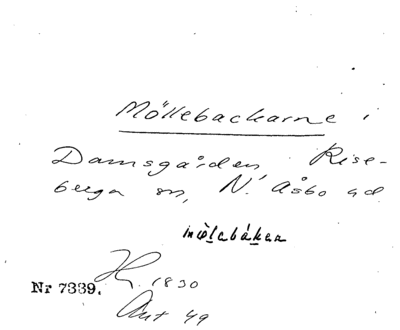 Möllebackarne i
Damsgården, Rise-
berga sn, N. Åsbo hd.
Nr 7339.
1830
Ant 49